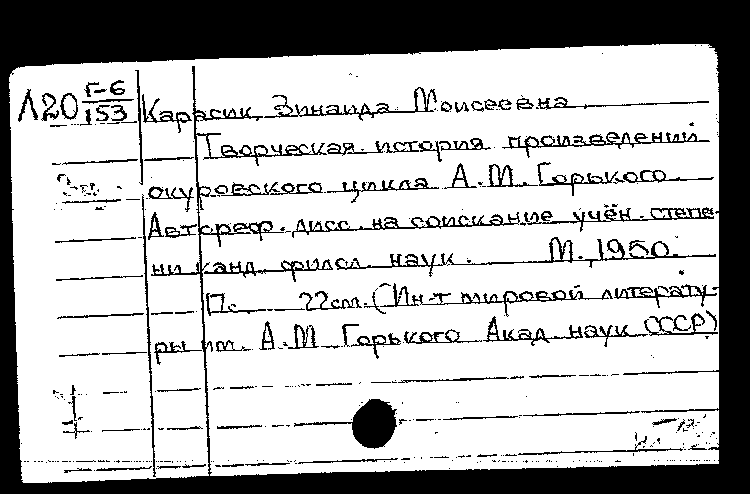 Л20 Г-6
153
Карасик, Зинаида Моисеевна.
Творческая история произведений
окуровского цикла А.М. Горького.
Автореф. дисс. на соискание учён. степе-
ни канд. филол. наук. М., 1950.
22см. (Ин-т мировой литерату-
ры им. А.М Горького Акад. наук СССР)